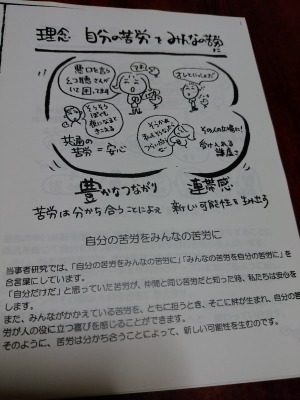 理念 自分の苦労をみんなの苦労に
悪口を言う
幻聴さんが
いて困ってます
でる!
オレといっしょだ
そうそう
ぼくも
きこえる
共通の
苦労=安心
その人の立場に!
受け入れる
豊かなつながり
連帯感
苦労は分かち合うことによって 新しい可能性を生み出す
自分の苦労をみんなの苦労に
当事者研究では、「自分の苦労をみんなの苦労に」「みんなの苦労を自分の苦労に」を
合言葉にしています。
「自分だけだ」と思っていた苦労が、仲間と同じ苦労だと知った時、私たちは安心を
します。
また、みんながかかえている苦労を、ともに担うとき、そこに絆が生まれ、自分の苦
労が人の役に立つ喜びを感じることができます。
そのように、苦労は分かち合うことによって、新しい可能性を生むのです。